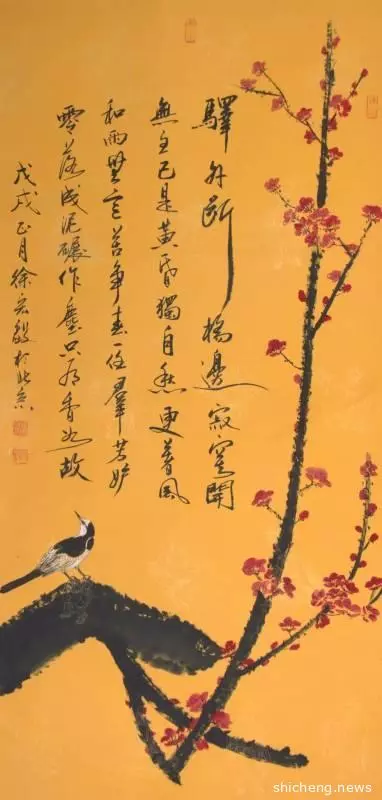 驛外斷橋邊寂寞開
無主已是黃昏獨自愁更著風
和雨無意苦爭春一任羣芳妒
零落成泥碾作塵只有香如故
戊戌正月徐於北京
shicheng.news